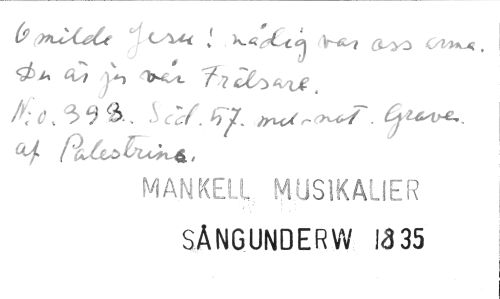 O milde Jesu! nådig var oss arma.
Du är ju vår Frälsare.
N:o. 393. Sid. 57. med not. Graver.
af Palestrina.
MANKELL MUSIKALIER
SÅNGUNDERW 1835